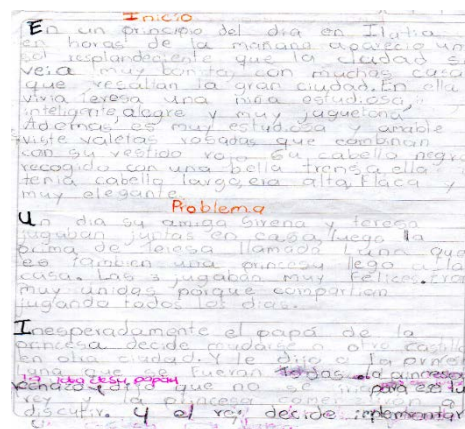 Inicio
En un principio del dia en Ilalia
en horas de la mañana aparecio un
sol resplandeciente que la ciudad se
veia muy bonita, con muchas casa
que resaltan la gran ciudad. En ella
vivia Teresa una niña estudiosa,
inteligente, alegre y muy juguetona
Ademas es muy estudiosa y amable
viste valetas rosadas que combinan
con su vestido rojo su cabello negro
recogido con una bella trensa ella
tenia cabello largo, era alta, flaca y
muy elegante
Problema
Un dia su amiga Sirena y teresa
jugaban juntas en casa, luego la
prima de teresa llamada luna que
es tambien una princesa llego a la
casa. Las 3 jugaban muy felices. Eran
muy unidas porque compartian
jugando todos los dias.
Inesperadamente el papá de la
princesa decide mudarse a otro castillo
en otra ciudad. Y le dijo a la princesa
luna que se fueran la princesa
la idea de su papá
rechazo y dijo que no se
rey y la princesa comenzaron a
discutir. y el rey decide implementar